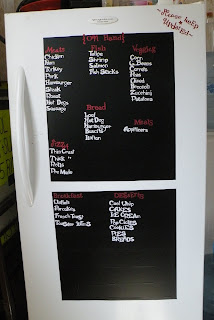 Please keep
updated
{On Hand}
Meats
Chicken
Ham
Turkey
Pork
Hamburger
Steak
Roast
Hot Dogs
Sausage
Fish
Talipia
Shrimp
Salmon
Fish Sticks
Veggies
Corn
G. Beans
Carrots
Peas
Broccoli
Zucchini
Potatoes
Bread
Loaf
Hot Dog
Hamburger
Biscuits
Italian
Meals
Appetizers
Pizza
Thin Crust
Thick "
Rolls
Pre Made
Breakfast
Waffles
Pancakes
French Toast
Desserts
Cool Whip
CAKES
ICE CREAM
PopSicles
COOKIES
PIES
BREADS